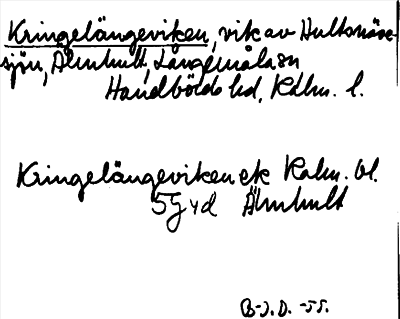 Kringelängeviken, vik av Hultsnäse-
sjön, Älmhult, Långemåla sn
Handbörds hd, Kalm. l.
Kringelängeviken ek Kalm. bl.
5G yd Älmhult
B-J.D. -55.